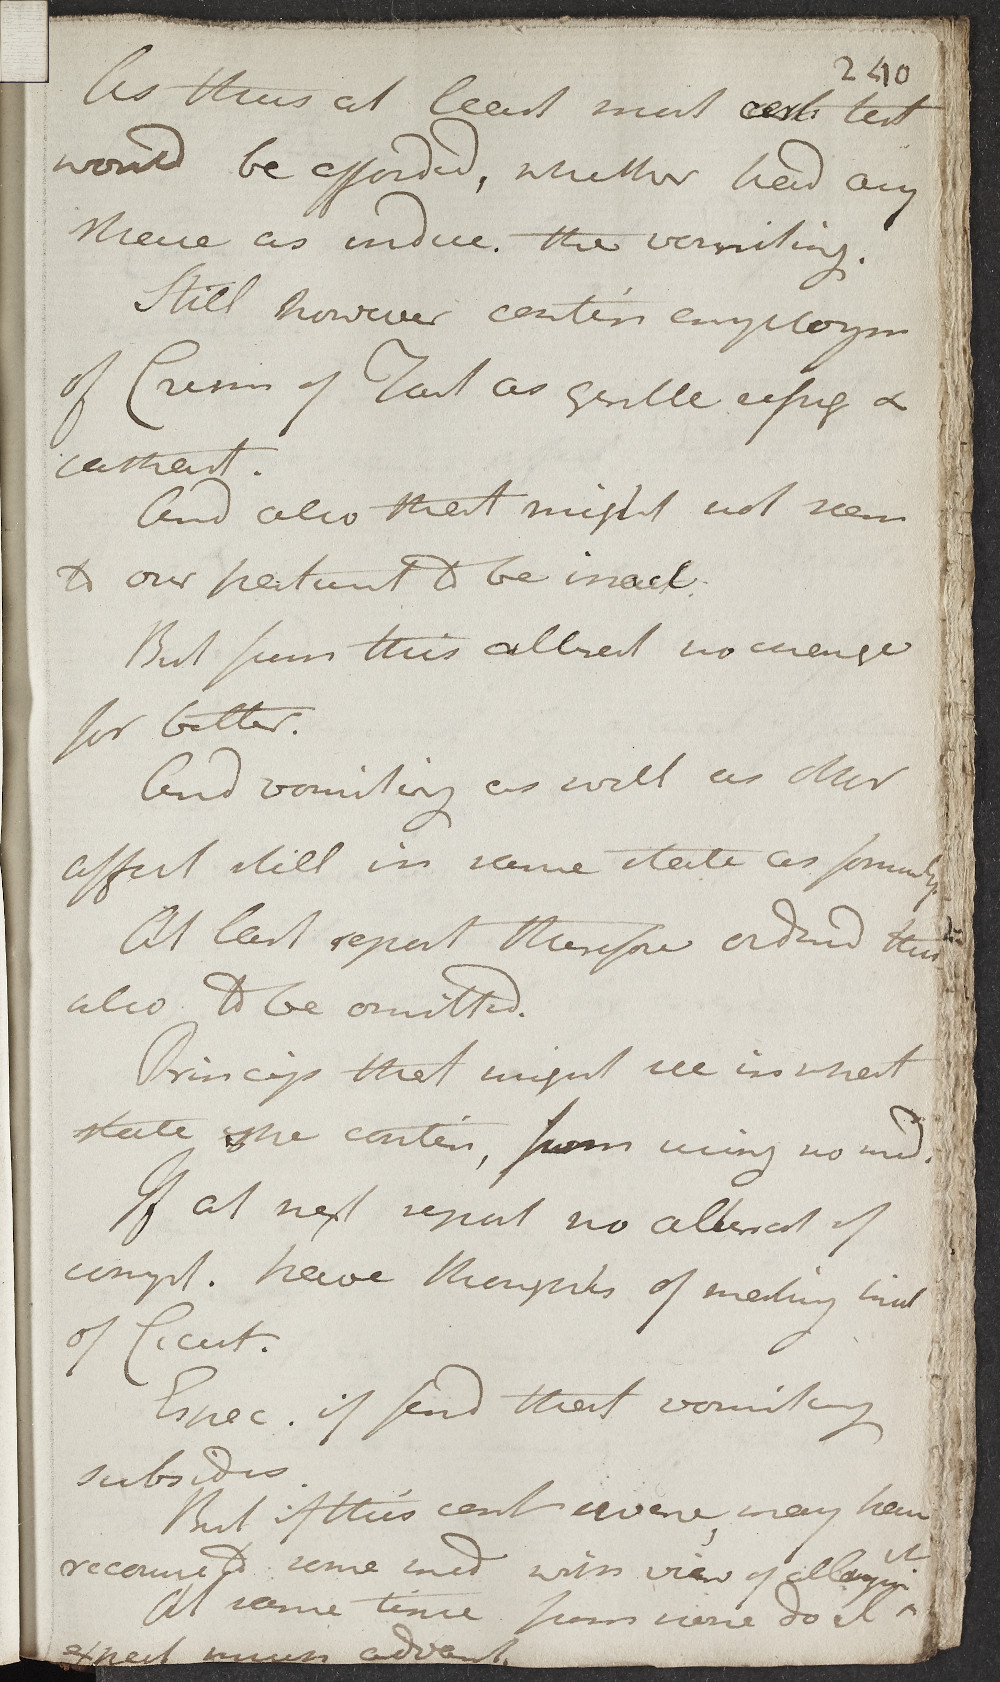 240
As thus at least most cert test
would be afforded, whether had any
share as induc. the vomiting.
Still however contin employm
of Cremor of Tart as gentle refrig &
cathart.
And also that might not seem
to our patient to be inact.
But from this alterat no change
for better.
And vomiting as well as other
affect still in same state as formerly
At last report therefore ordered this
also to be omitted.
Princip that might see in what
state she contin, from using no med.
If at next report no alterat of
compl. have thoughts of making trial
of Cicut.
Espec. if find that vomiting
subsides.
But if this cont severe, may have
recourse to some med with view of allaying it
At same time from none do I
expect much advant.